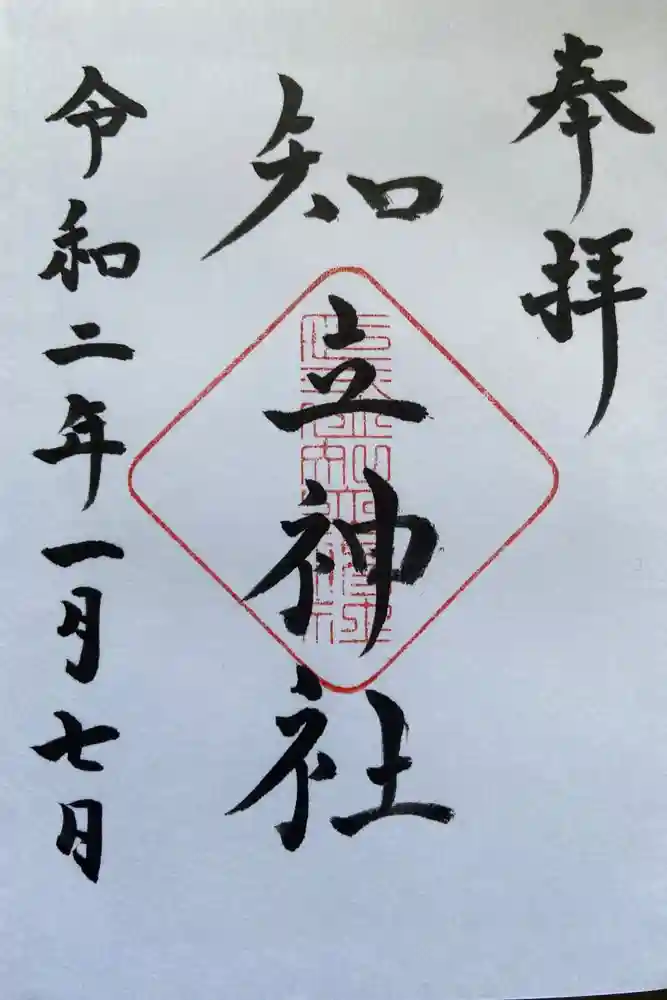 奉拝
知立神社
令和二年一月七日